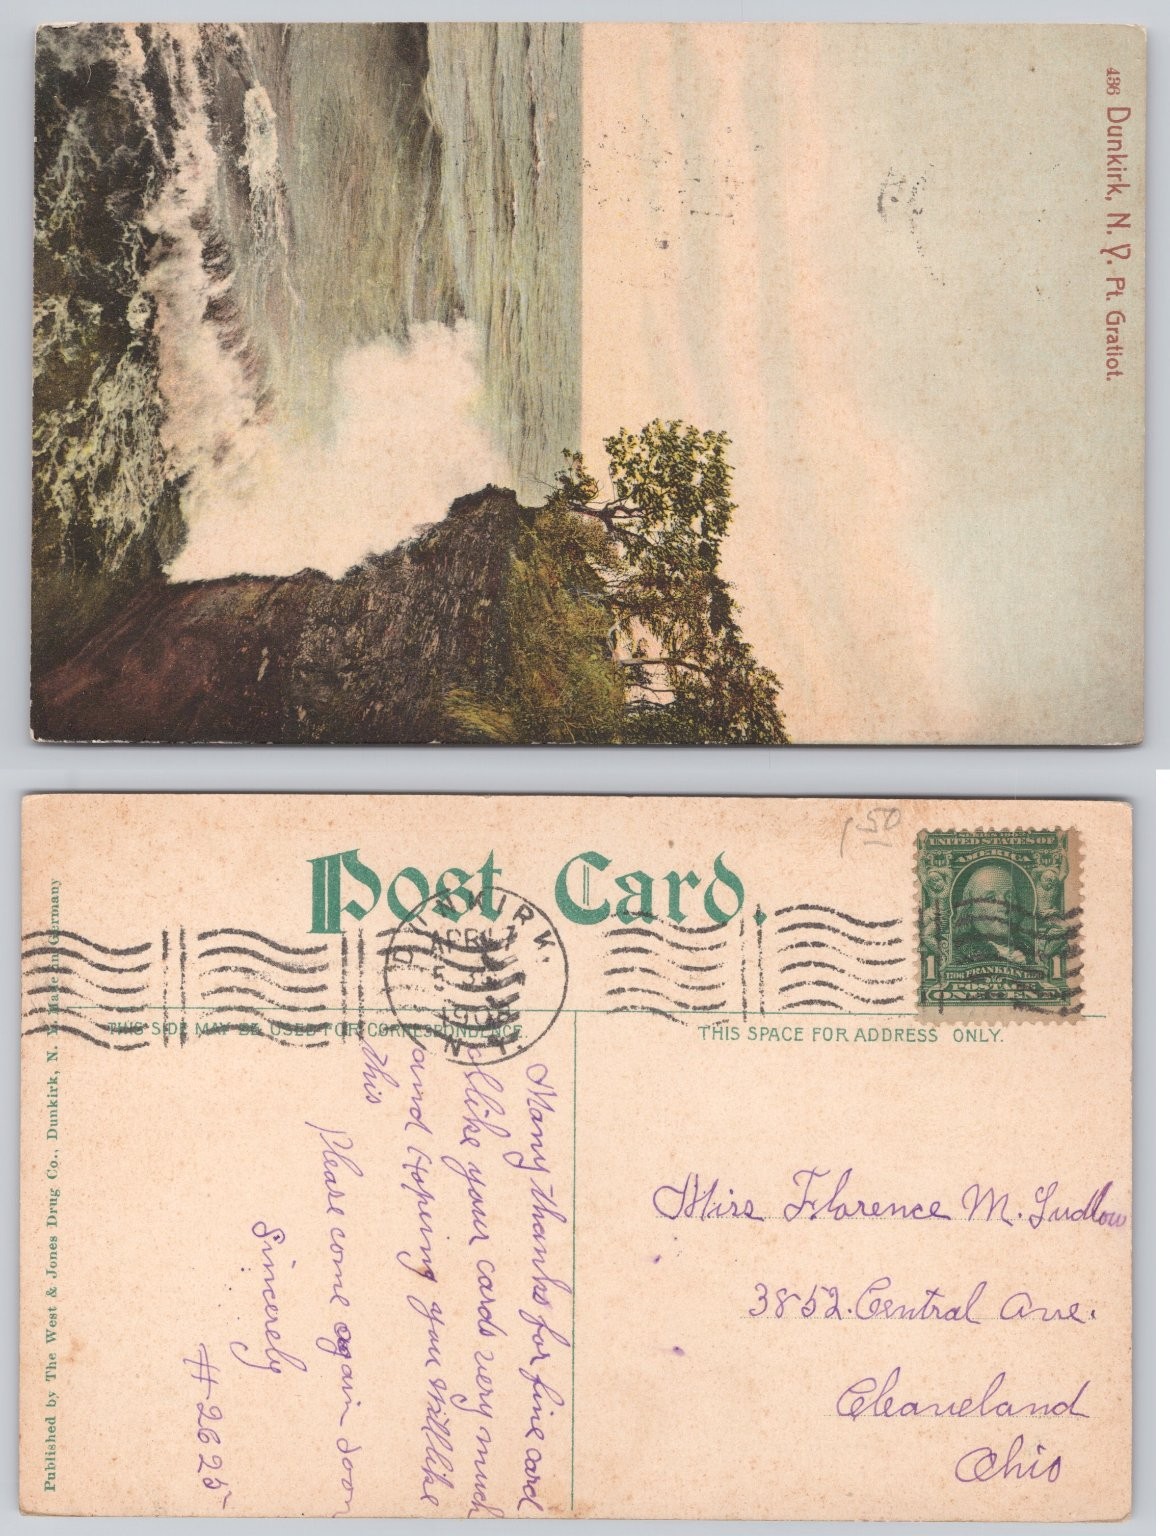 436 Dunkirk, N. Y. Pt. Gratiot.
1 50
Post Card.
UNITED STATES OF
AMERICA
FRANKLIN
POSTAGE
ONE CENT
1 1
DUNKIRK.
APR 17
5
1908
N.Y.
THIS SIDE MAY BE USED FOR CORRESPONDENCE.
THIS SPACE FOR ADDRESS ONLY.
Many thanks for fine card
I like your cards very much
and Hoping you will like
this
Please come again soon
Sincerely
# 2625
Miss Florence M. Ludlow
3852. Central Ave.
Cleaveland
Ohio
Published by The West & Jones Drug Co., Dunkirk, N. Y. Made in Germany